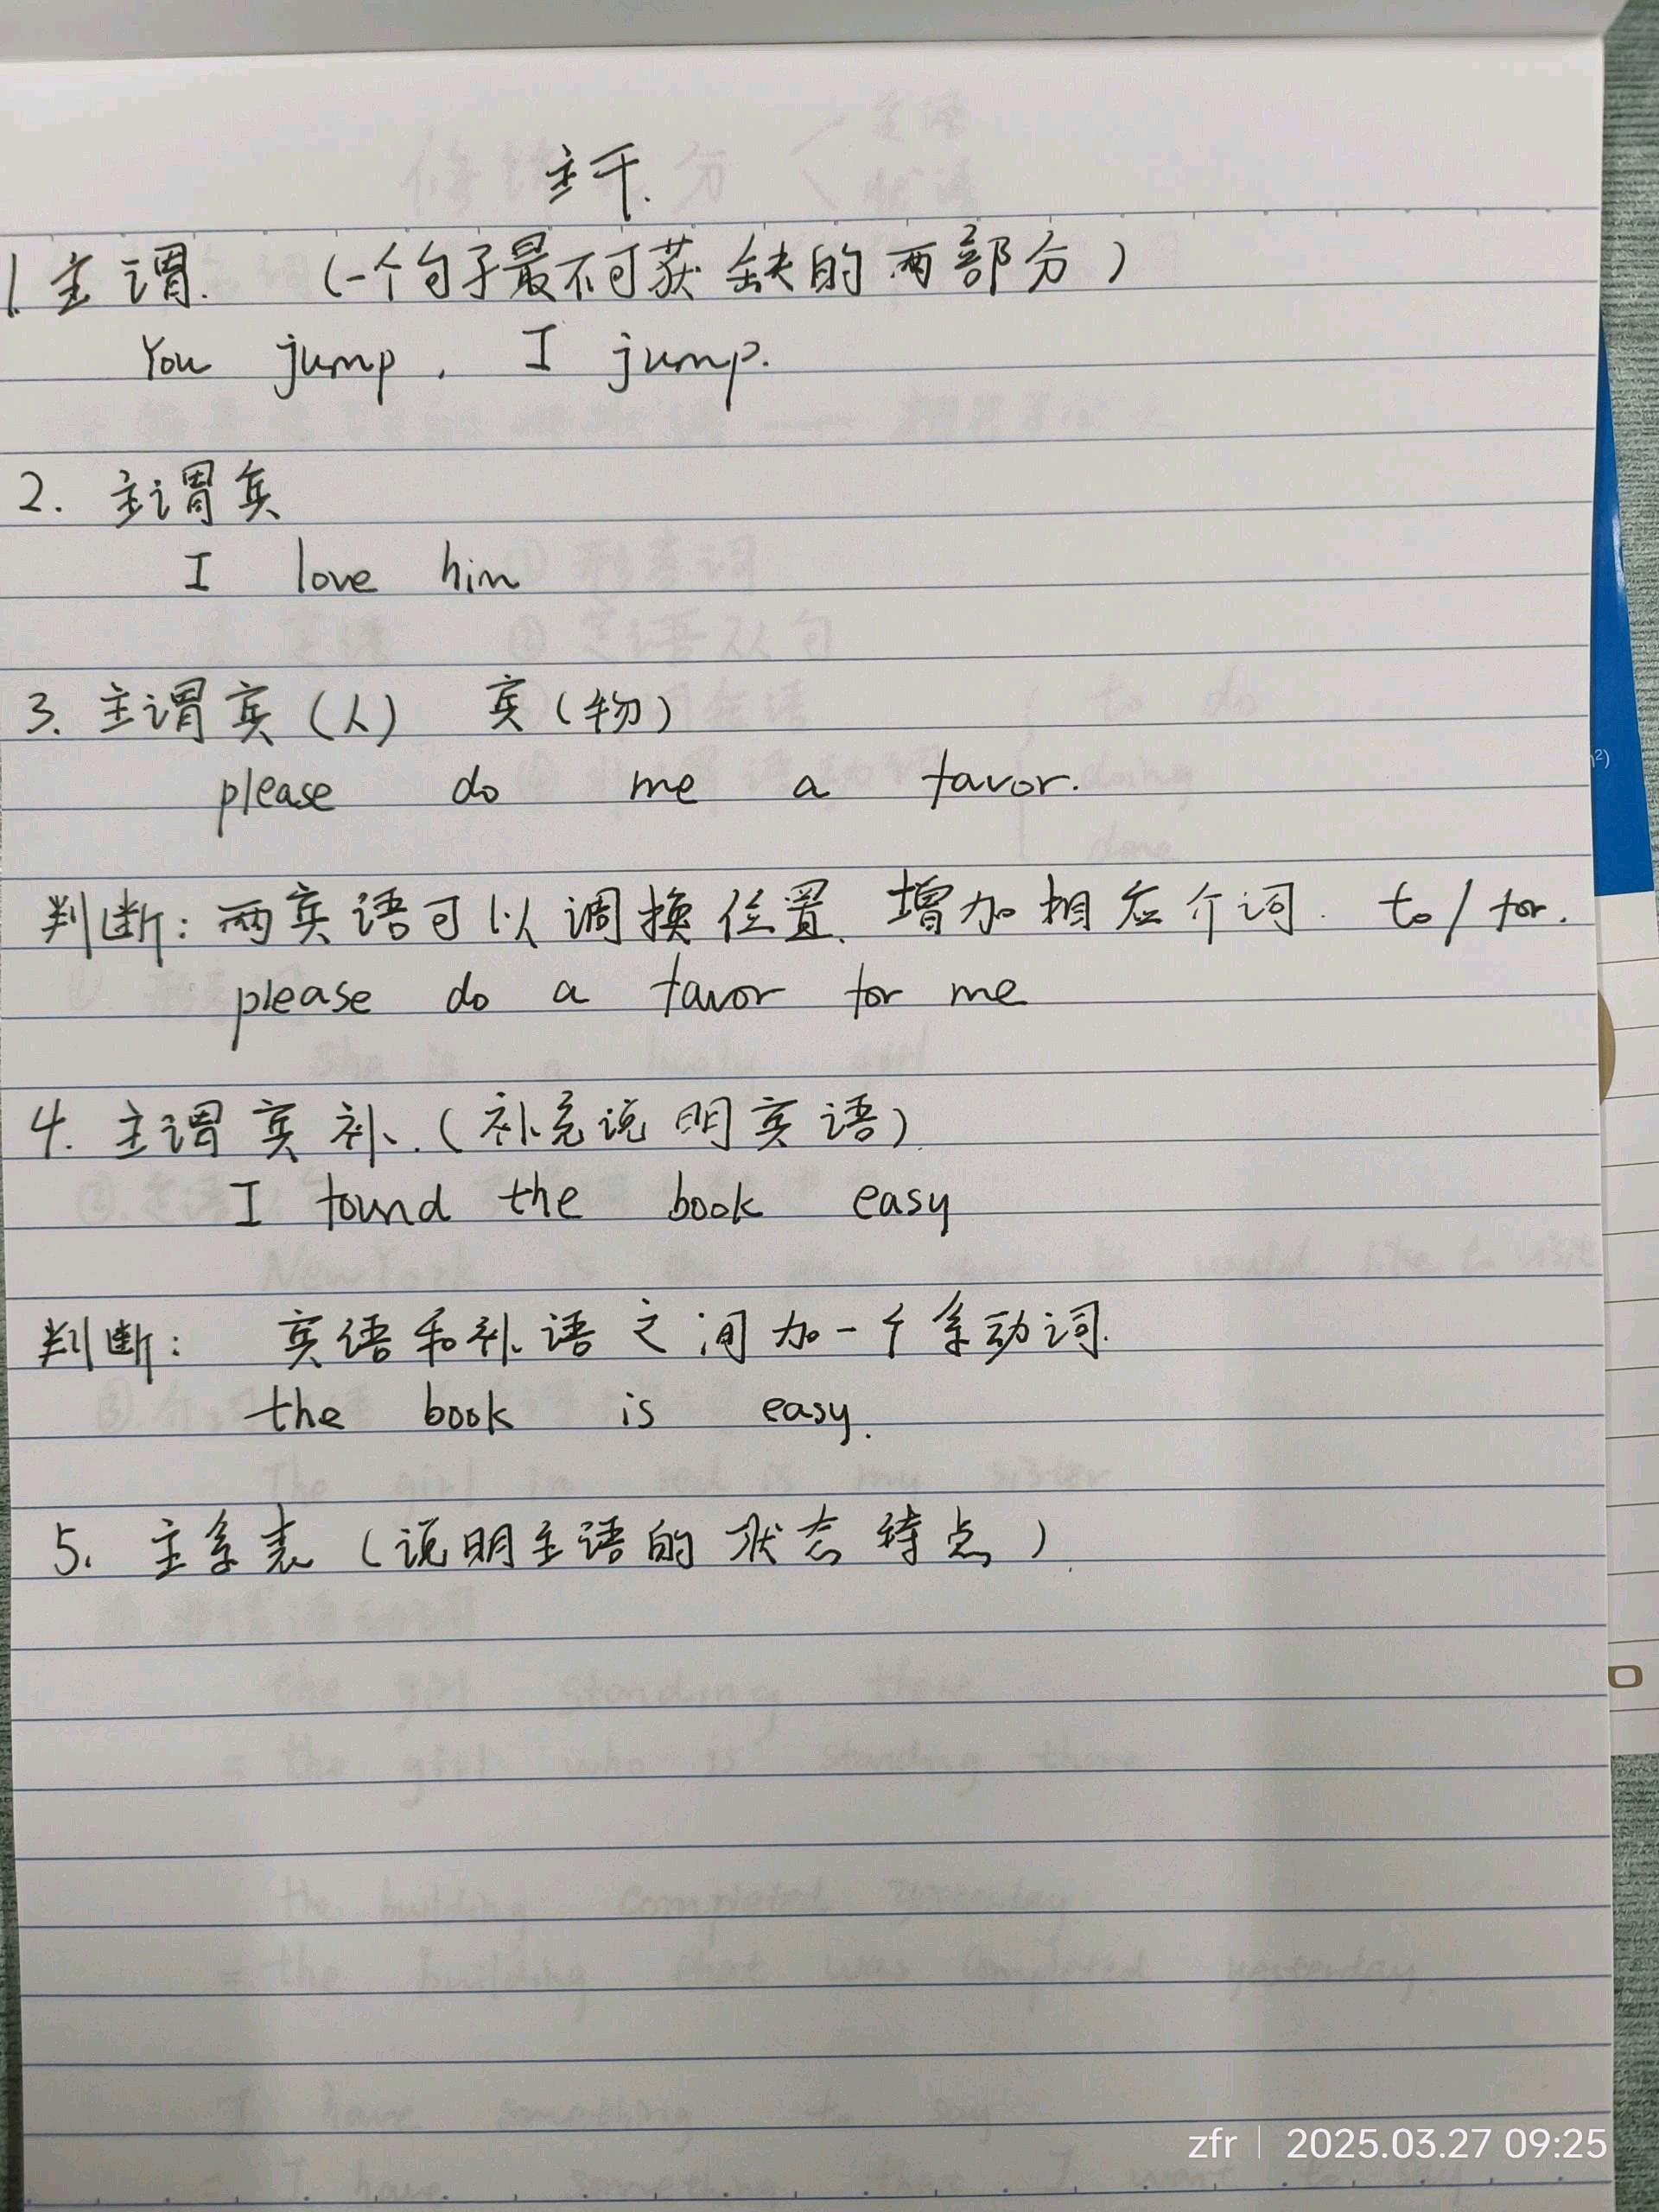 主干.
1. 主谓. (一个句子最不可获缺的两部分)
You jump, I jump.
2. 主谓宾
I love him
3. 主谓宾(人) 宾(物)
please do me a favor.
判断: 两宾语可以调换位置、增加相应介词. to/for.
please do a favor for me
4. 主谓宾补.(补充说明宾语)
I found the book easy
判断: 宾语和补语之间加一个系动词.
the book is easy.
5. 主系表 (说明主语的状态特点).
zfr | 2025.03.27 09:25